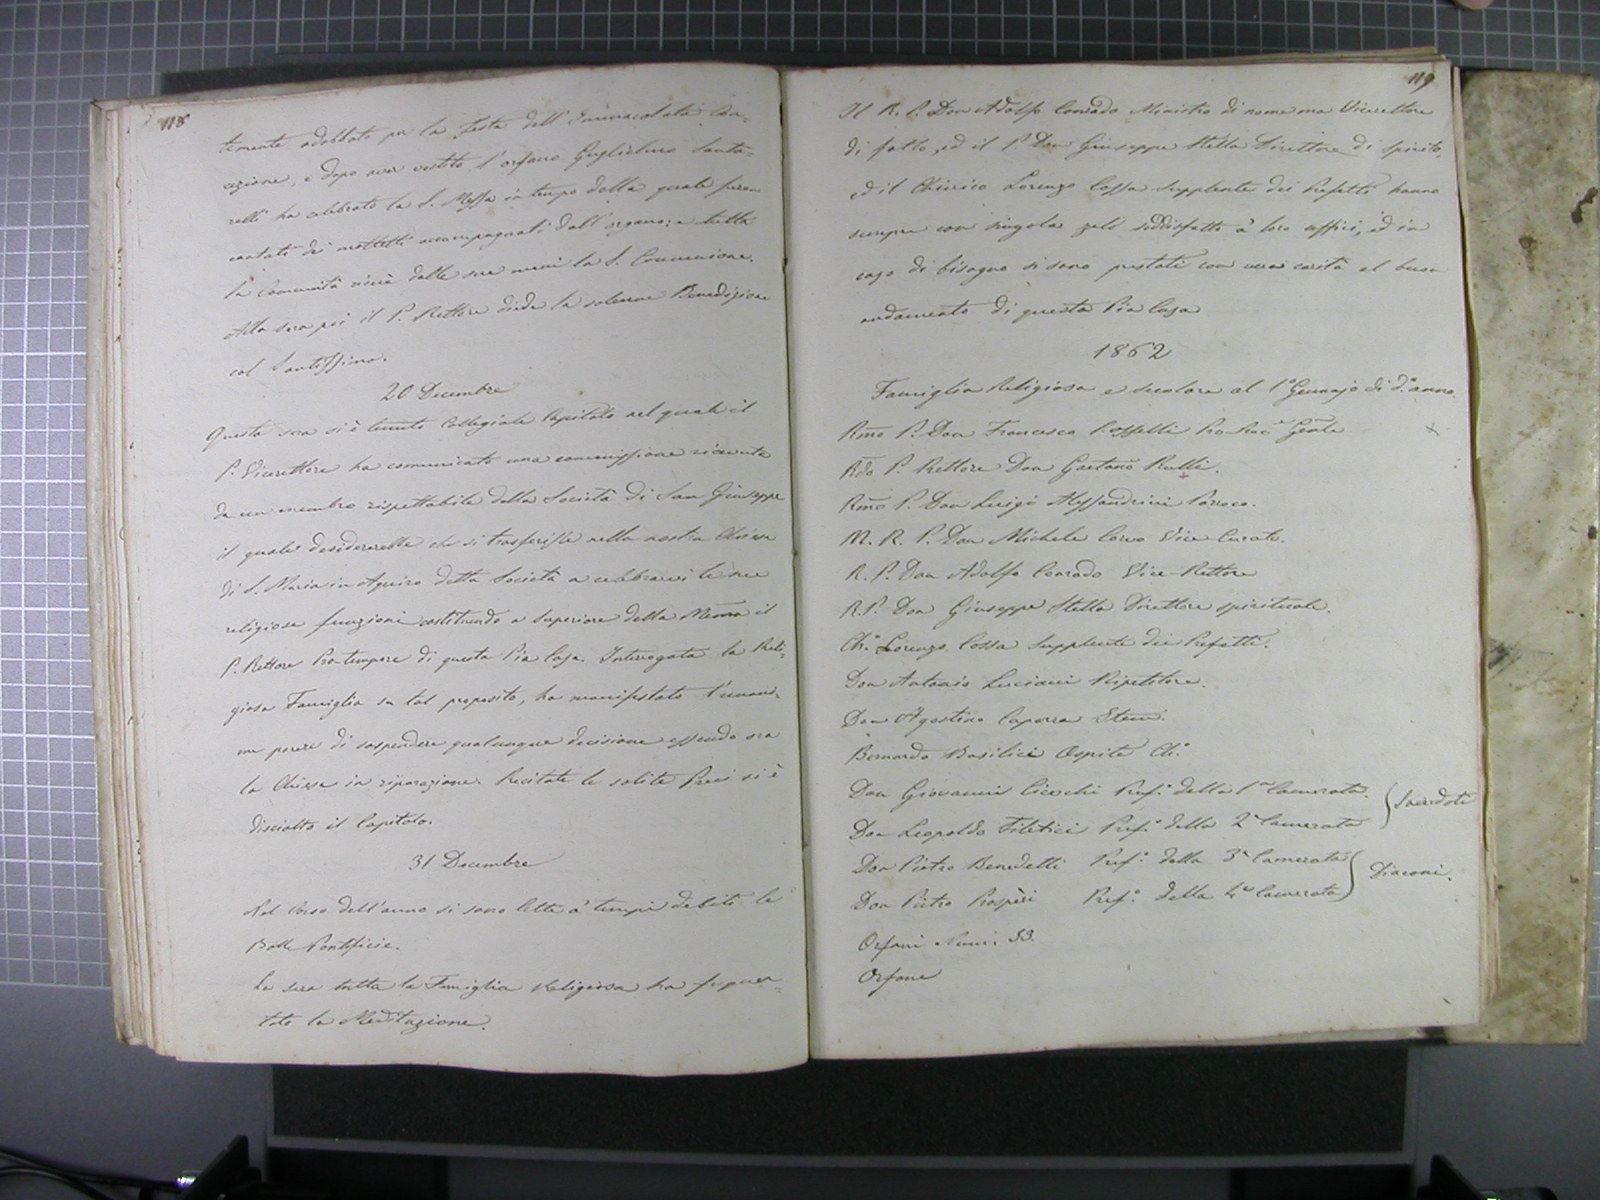 118
temente addobbata per la festa dell'Immacolata Con-
cezione, e dopo aver vestito l'orfano Guglielmo Santa-
relli ha celebrato la S. Messa in tempo della quale furon
cantati dei mottetti accompagnati dall'organo; e tutta
la Comunità ricevè dalle sue mani la S. Comunione.
Alla sera poi il P. Rettore diede la solenne Benedizione
col Santissimo.
20 Decembre
Questa sera si è tenuto Collegiale Capitolo nel quale il
P. Vicerettore ha comunicato una commissione ricevuta
da un membro rispettabile della Società di San Giuseppe
il quale desidererebbe che si trasferisse nella nostra Chiesa
di S. Maria in Aquiro detta Società a celebrarvi le sue
religiose funzioni costituendo a Superiore della Medma il
P. Rettore Pro-tempore di questa Pia Casa. Interrogata la Reli-
giosa Famiglia su tal proposito, ha manifestato l'unani-
me parere di sospendere qualunque decisione essendo ora
la Chiesa in riparazione. Recitate le solite Preci si è
disciolto il Capitolo.
31 Decembre
Nel corso dell'anno si sono lette a' tempi debiti le
Bolle Pontificie.
La sera tutta la Famiglia Religiosa ha frequen-
tato la Meditazione.
119
Il R. P. Don Adolfo Conrado Ministro di nome ma Vicerettore
di fatto, ed il P. Don Giuseppe Stella Direttore di spirito,
ed il Chierico Lorenzo Cossa supplente dei Prefetti hanno
sempre con singolar zelo soddisfatto a' loro uffici, ed in
caso di bisogno si sono prestati con vera carità al buon
andamento di questa Pia Casa
1862
Famiglia Religiosa e secolare al 1° Gennajo di d.° anno.
Rmo P. Don Francesco Rosselli Pro-Proc.e Gnle
Rdo P. Rettore Don Gaetano Rulli.
Rmo P. Don Luigi Alessandrini Parroco.
M. R. P. Don Michele Corvo Vice-Curato.
R. P. Don Adolfo Conrado Vice-Rettore
R. P. Don Giuseppe Stella Direttore spirituale.
Ch.° Lorenzo Cossa Supplente dei Prefetti.
Don Antonio Luciani Ripetitore.
Don Agostino Caporra
Bernardo Basilici Ospite Ch.°
Don Giovanni Ciecchi Pref.° della 1a Camerata. } Sacerdoti
Don Leopoldo Filetici Pref.° della 2a Camerata
Don Pietro Benedetti Pref.° della 3a Camerata } Diaconi.
Don Pietro Prosperi Pref.° della 4a Camerata
Orfani Num. 33.
Orfane